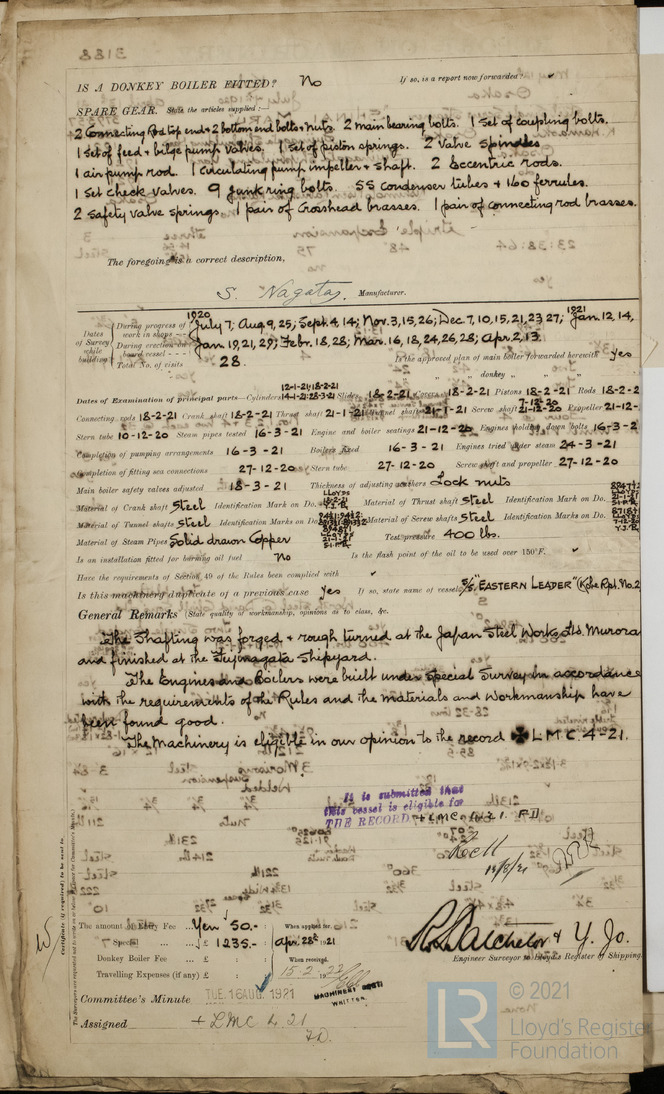 IS A DONKEY BOILER FITTED? No If so, is a report now forwarded? ✓
SPARE GEAR. State the articles supplied:—
2 Connecting Rod top end & 2 bottom end bolts & nuts. 2 main bearing bolts. 1 set of coupling bolts.
1 set of feed & bilge pump valves. 1 set of piston springs. 2 valve spindles
1 air pump rod. 1 circulating pump impeller & shaft. 2 Eccentric rods.
1 set check valves. 9 junk ring bolts. 55 condenser tubes & 160 ferrules.
2 safety valve springs. 1 pair of Crosshead brasses. 1 pair of connecting rod brasses.
The foregoing is a correct description,
S. Nagata. Manufacturer.
1920 1921
Dates of Survey while building
During progress of work in shops — July 7; Aug 9, 25; Sept. 4, 14; Nov. 3, 15, 26; Dec 7, 10, 15, 21, 23, 27; Jan. 12, 14,
During erection on board vessel — Jan 19, 21, 29; Febr. 18, 28; Mar. 16, 18, 24, 26, 28; Apr. 2, 13.
Total No. of visits 28. Is the approved plan of main boiler forwarded herewith Yes
" " donkey " " "
Dates of Examination of principal parts—Cylinders 12-1-21; 18-2-21 14-1-21; 28-3-21 Slides 18-2-21 Covers 18-2-21 Pistons 18-2-21 Rods 18-2-2
Connecting rods 18-2-21 Crank shaft 18-2-21 Thrust shaft 21-1-21 Tunnel shafts 21-1-21 Screw shaft 7-12-20 21-12-20 Propeller 21-12-
Stern tube 10-12-20 Steam pipes tested 16-3-21 Engine and boiler seatings 21-12-20 Engines holding down bolts 16-3-2
Completion of pumping arrangements 16-3-21 Boilers fixed 16-3-21 Engines tried under steam 24-3-21
Completion of fitting sea connections 27-12-20 Stern tube 27-12-20 Screw shaft and propeller 27-12-20
Main boiler safety valves adjusted 18-3-21 Thickness of adjusting washers Lock nuts
Material of Crank shaft Steel Identification Mark on Do. LLOYDS 18-2-21 Y.J. Material of Thrust shaft Steel Identification Mark on Do.
Material of Tunnel shafts Steel Identification Marks on Do. Material of Screw shafts Steel Identification Marks on Do.
Material of Steam Pipes Solid drawn Copper Test pressure 400 lbs.
Is an installation fitted for burning oil fuel No Is the flash point of the oil to be used over 150°F. ✓
Have the requirements of Section 49 of the Rules been complied with ✓
Is this machinery duplicate of a previous case Yes If so, state name of vessel S/S "EASTERN LEADER" (Kobe Rpt. No. 2
General Remarks (State quality of workmanship, opinions as to class, &c.
The Shafting was forged & rough turned at the Japan Steel Works Ltd. Murora
and finished at the Fujinagata Shipyard.
The Engines and Boilers were built under Special Survey in accordance
with the requirements of the Rules and the materials and Workmanship have
been found good.
The Machinery is eligible in our opinion to the record ✠ L.M.C. 4-21.
It is submitted that
this vessel is eligible for
THE RECORD. + LMC 4.21. FD
Certificate (if required) to be sent to
The amount of Entry Fee ... Yen 50.- When applied for,
Special ... £ 1235.- Apr. 28th 1921
Donkey Boiler Fee ... £ When received,
Travelling Expenses (if any) £ 15.2.1922
R. S. Batchelor & Y. Jo.
Engineer Surveyor to Lloyd's Register of Shipping
Committee's Minute TUE. 16 AUG. 1921
MACHINERY CERT. WRITTEN
Assigned + LMC 4.21
F.D.
LR © 2021
Lloyd's Registe
Foundation